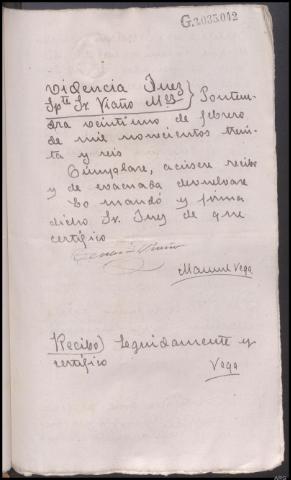 G.2035.042
videncia Juez
Spte Sr Viaño Mes } Ponteve-
dra veintiuno de febrero
de mil novecientos trein-
ta y seis
Cumplase, acusese recibo
y de evacuada devuelvase
Lo mandó y firma
dicho Sr. Juez de que
certifico
Manuel Vega
Recibo) Seguidamente y
certifico
Vega